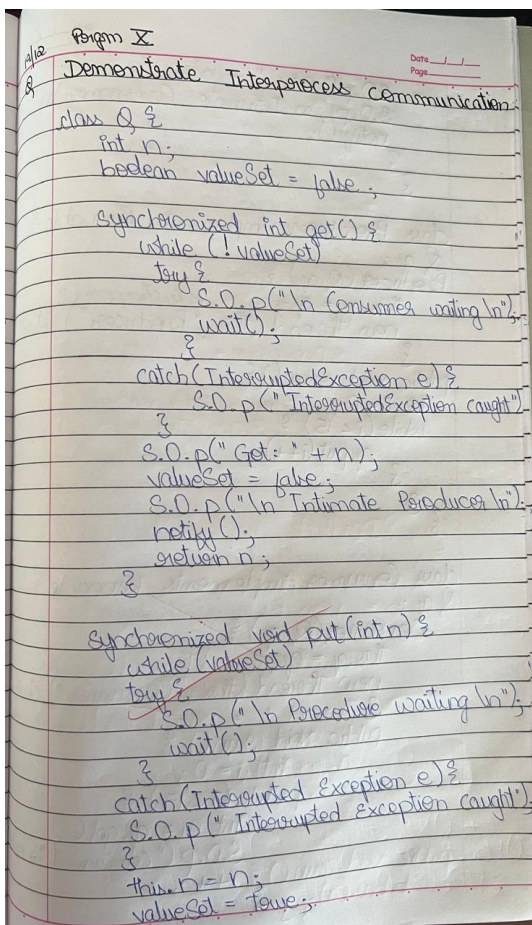 Prgm X
Date
Page
Q Demonstrate Interprocess communication
class Q {
int n;
boolean valueSet = false;
synchronized int get() {
while (! valueSet)
try {
S.O.p("\n Consumer waiting \n");
wait();
}
catch(InterruptedException e) {
S.O.p("InterruptedException caught")
}
S.O.p("Got: " + n);
valueSet = false;
S.O.p("\n Intimate Producer \n");
notify();
return n;
}
synchronized void put(int n) {
while (valueSet)
try {
S.O.p("\n Procedure waiting \n");
wait();
}
catch(Interrupted Exception e) {
S.O.p("Interrupted Exception caught")
}
this.n = n;
valueSet = true;